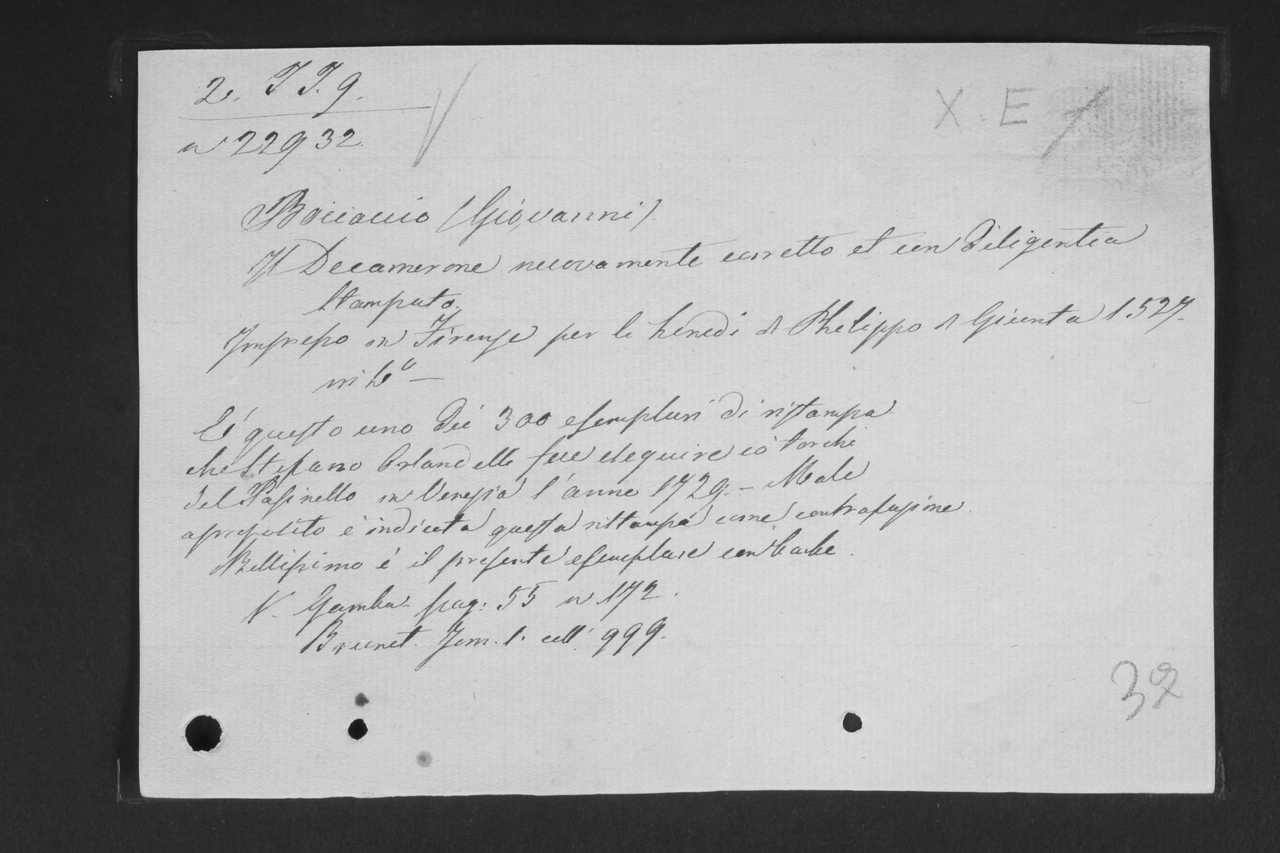 2. J J. 9.
X. E
n° 22932.
Boccaccio (Giovanni)
Il Decamerone nuovamente corretto et con diligentia
stampato.
Impresso in Firenze per li heredi di Philippo di Giunta 1527.
in 4° —
É questo uno dei 300 esemplari di ristampa
che Stefano Orlandelli fece eseguire co' torchi
del Pasinello in Venezia l'anno 1729. — Male
a proposito é indicata questa ristampa come contrafazione.
Bellissimo é il presente esemplare con barbe.
V. Gamba pag: 55 n 172.
Brunet. Tom. 1. coll. 999.
32